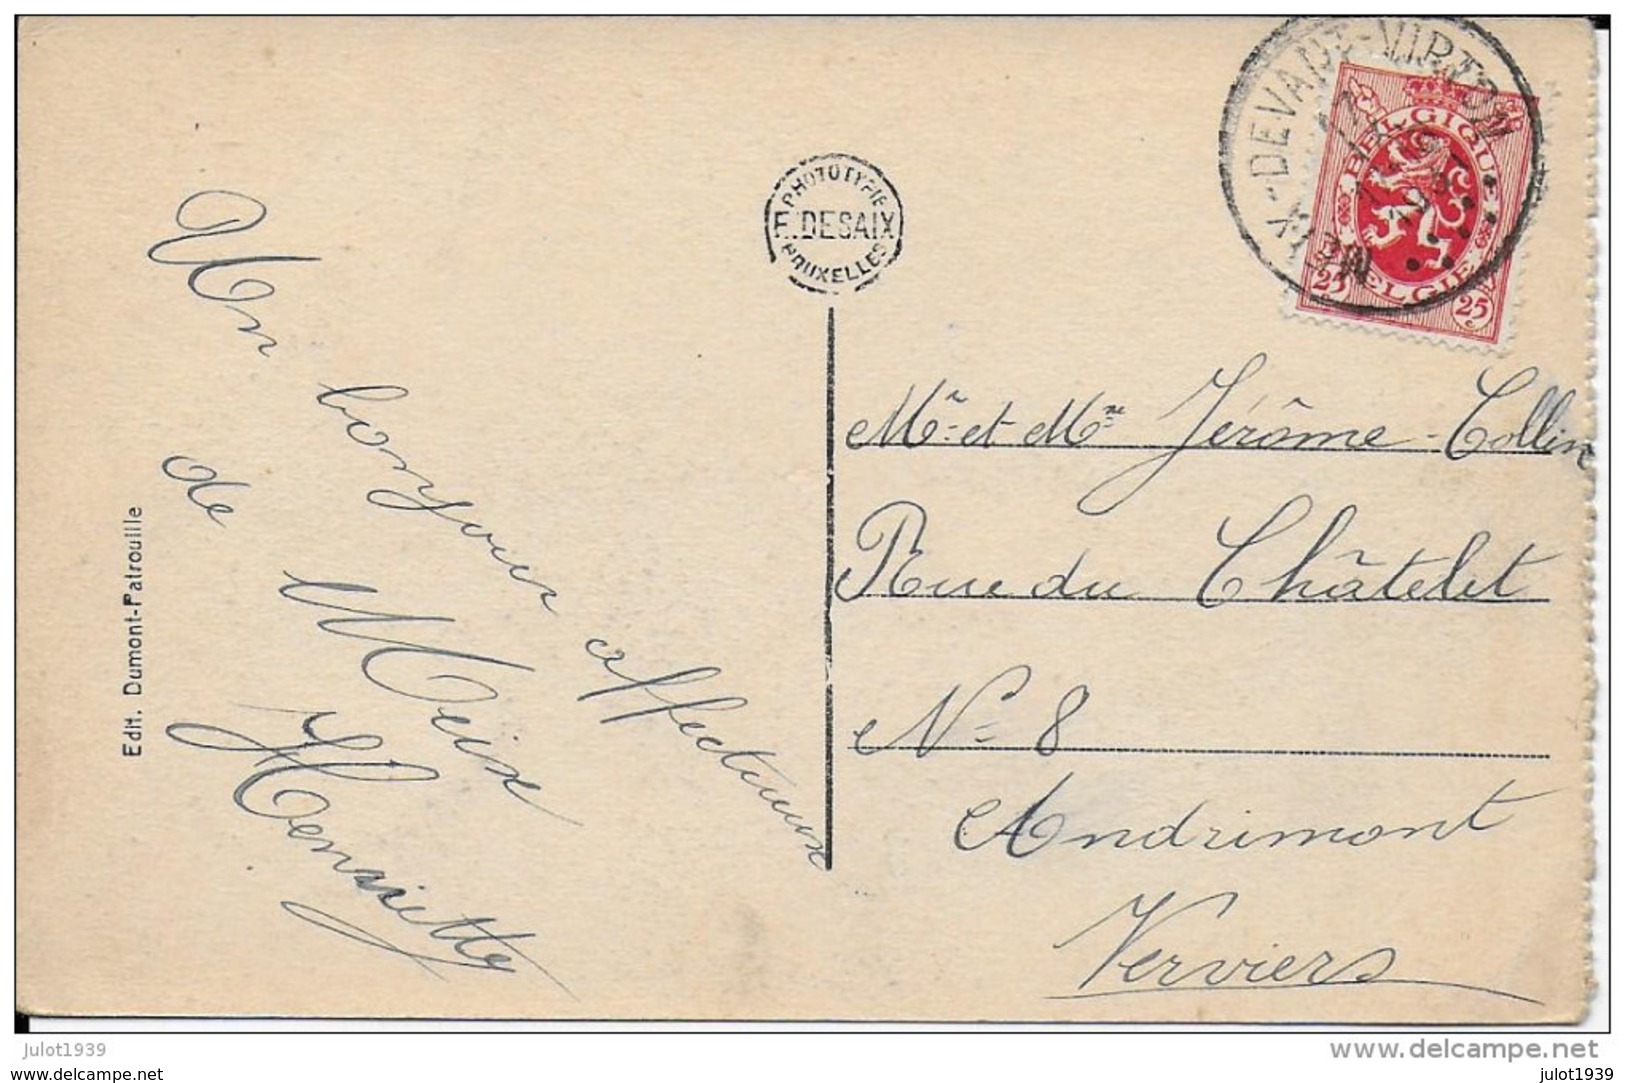 Un bonjour affectueux
de Meix
Henriette
Edit. Dumont-Patrouille
PHOTOTYPIE
E. DESAIX
BRUXELLES
MEIX-DEVANT-VIRTON
BELGIQUE
BELGIE
25
25
c
Mr et Mme Jérôme-Collin
Rue du Châtelet
No 8
Andrimont
Verviers
julot1939
www.delcampe.net
julot1939
www.delcampe.com
julot1939